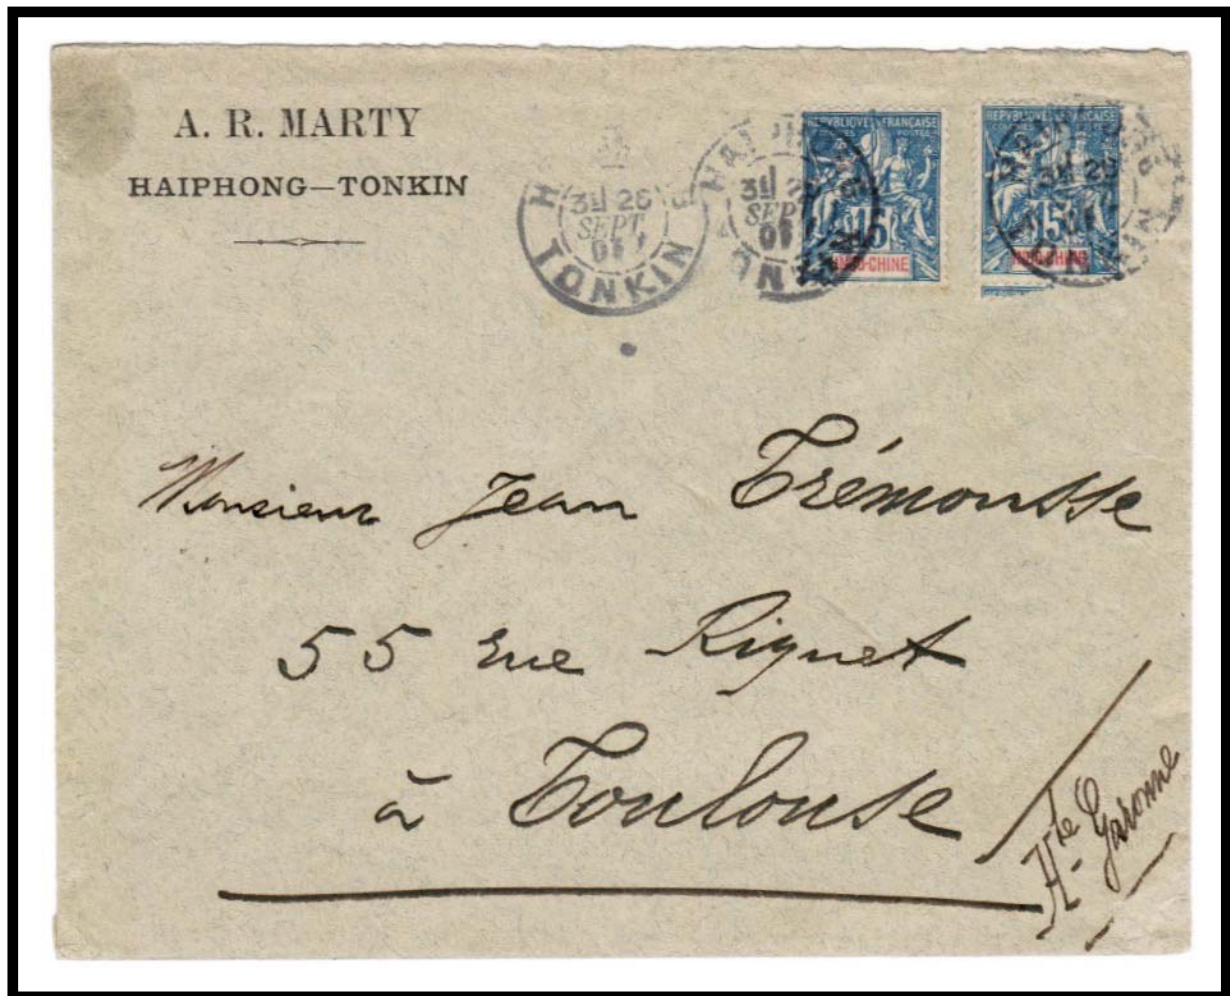 A. R. MARTY
HAIPHONG—TONKIN
3E 26
SEPT
01
TONKIN
HAIPHONG
3E 26
SEPT
01
TONKIN
REPVBLIQVE FRANÇAISE
COLONIES POSTES
15
INDO-CHINE
REPVBLIQVE FRANÇAISE
15
INDO-CHINE
Monsieur Jean Trémousse
55 rue Riquet
à Toulouse
Hte Garonne